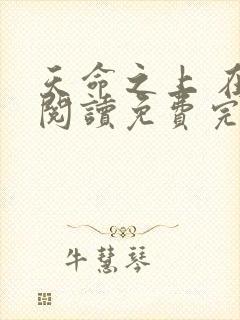 天命之上 在
閱讀免費完
牛慧琴